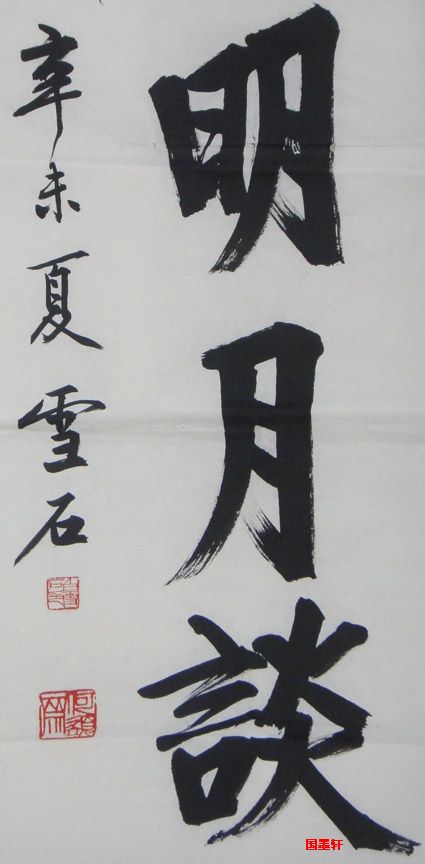 明月談
辛未夏雪石
国墨轩